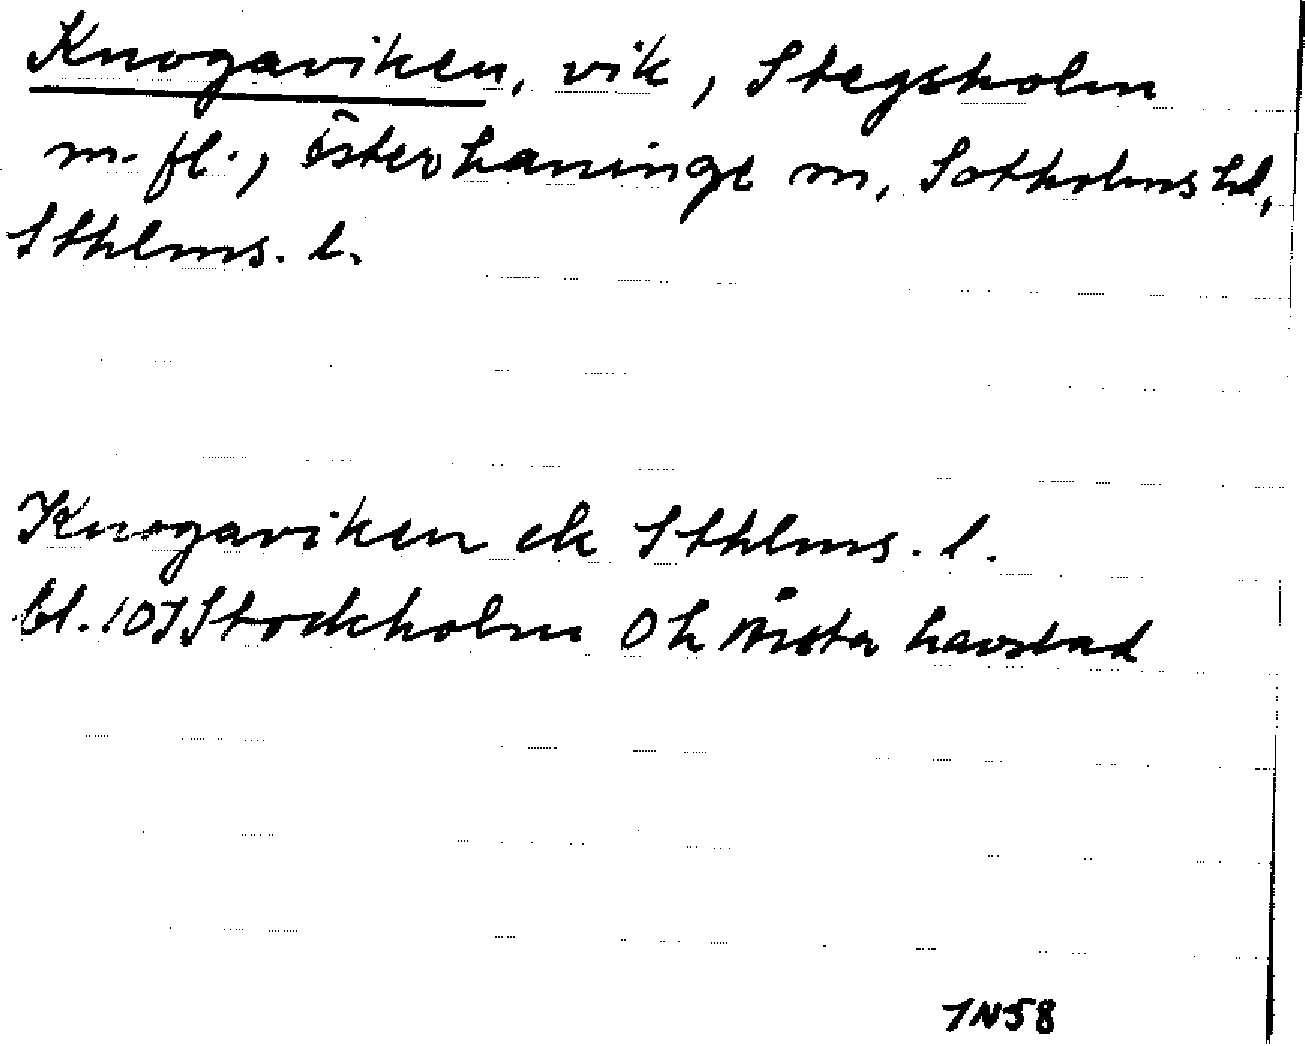 Knogaviken, vik, Stegsholm
m. fl., Österhaninge sn, Sotholms hd,
Sthlms. l.
Knogaviken ek Sthlms. l.
bl. 10I Stockholm
1N58